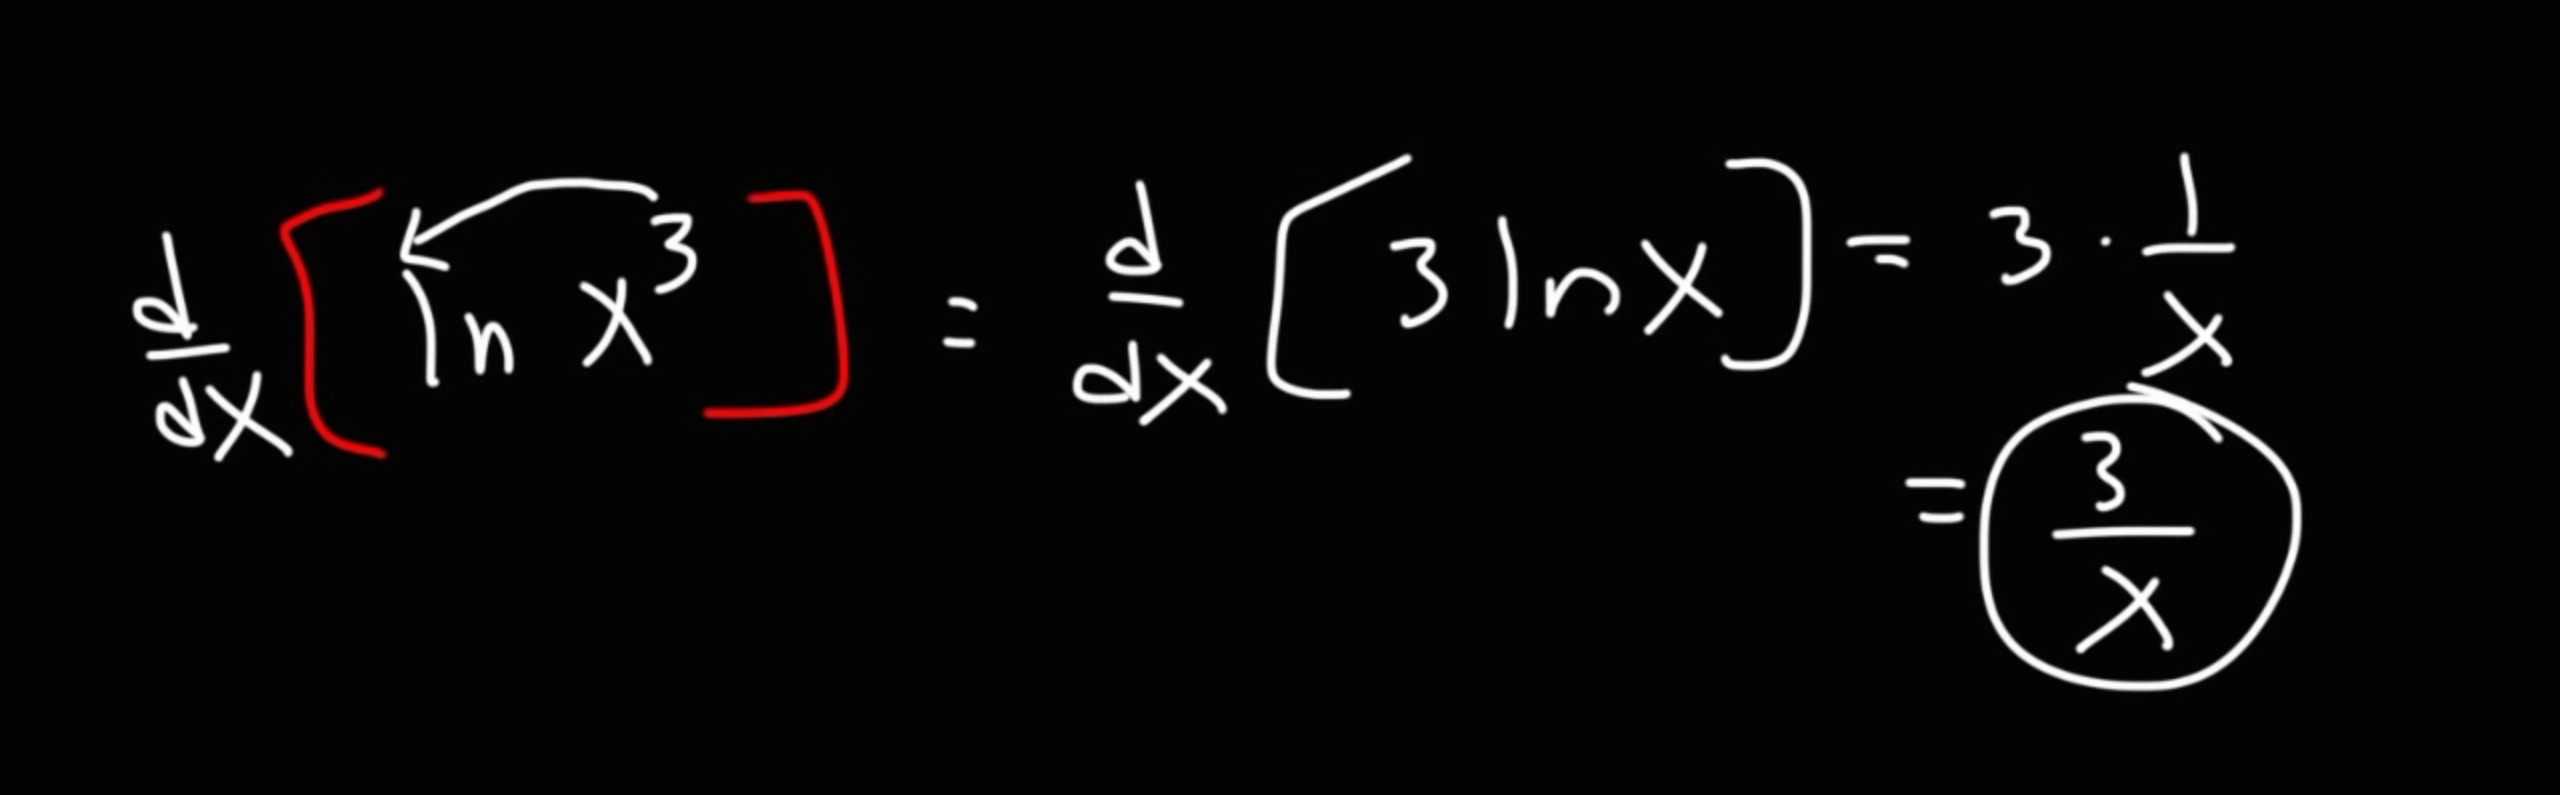 d/dx [ln x³] = d/dx [3 ln x] = 3 · 1/x
= 3/x